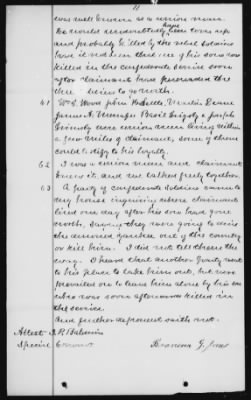 11
was well known as a union man.
He would undoubtedly have been
and probably killed by the rebel soldiers
have it not been that one of his sons was
killed in the confederate service soon
after claimant have
their desire to go north.
61 Wm S. Wood John
James A. Basil Grigsby & Joseph
Grimsly were union men living within
a few miles of claimant, some of them
could testify to his loyalty.
62 I was a union man and claimant
knew it, and we talked freely together.
63 A party of confederate soldiers came to
my house inquiring where claimant
lived one day after his son had gone
north, saying they were going to drive
the damned yankee out of this country
or kill him. I did not tell them the
way. I heard that another party went
to his place to take him out, but were
prevailed on to leave him alone by his son
who was soon afterwards killed in
the service.
And further deponent saith not.
Attest J. R. Baldwin
Special